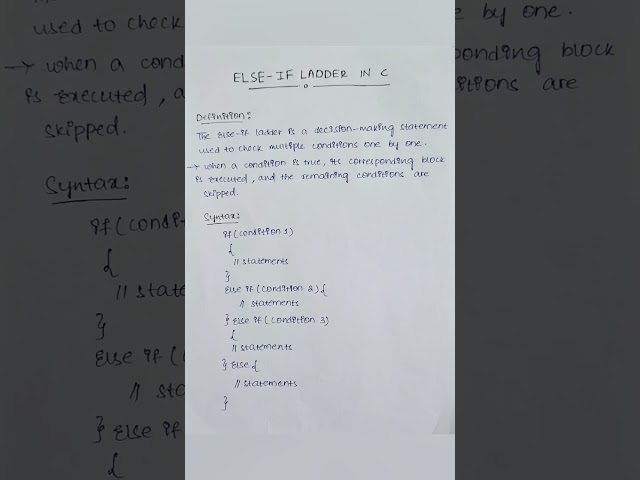 ELSE-IF LADDER IN C
Definition:
The Else-if ladder is a decision-making statement
used to check multiple conditions one by one.
→ when a condition is true, its corresponding block
is executed, and the remaining conditions are
skipped.
Syntax:
if(condition 1)
{
// statements
}
Else if(condition 2){
// statements
} Else if(condition 3)
{
// statements
} Else{
// statements
}